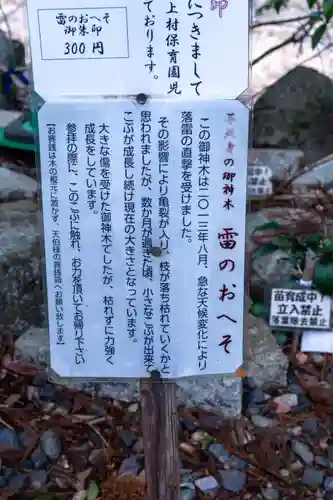 雷のおへそ
御朱印
300円
につきまして
上村保育園児
ております。
の御神木 雷のおへそ
この御神木は二〇一三年八月、急な天候変化により
落雷の直撃を受けました。
その影響により亀裂が入り、枝が落ち枯れていくかと
思われましたが、数か月が過ぎた頃、小さなこぶが出来て
こぶが成長し続け現在の大きさとなっています。
大きな傷を受けた御神木でしたが、枯れずに力強く
成長をしています。
参拝の際に、このこぶに触れて、お力を頂いてお帰り下さい
【お賽銭は樹木の根元に置かず、天伯様の賽銭箱へお願いします】
苗育成中
立入禁止
落雷除